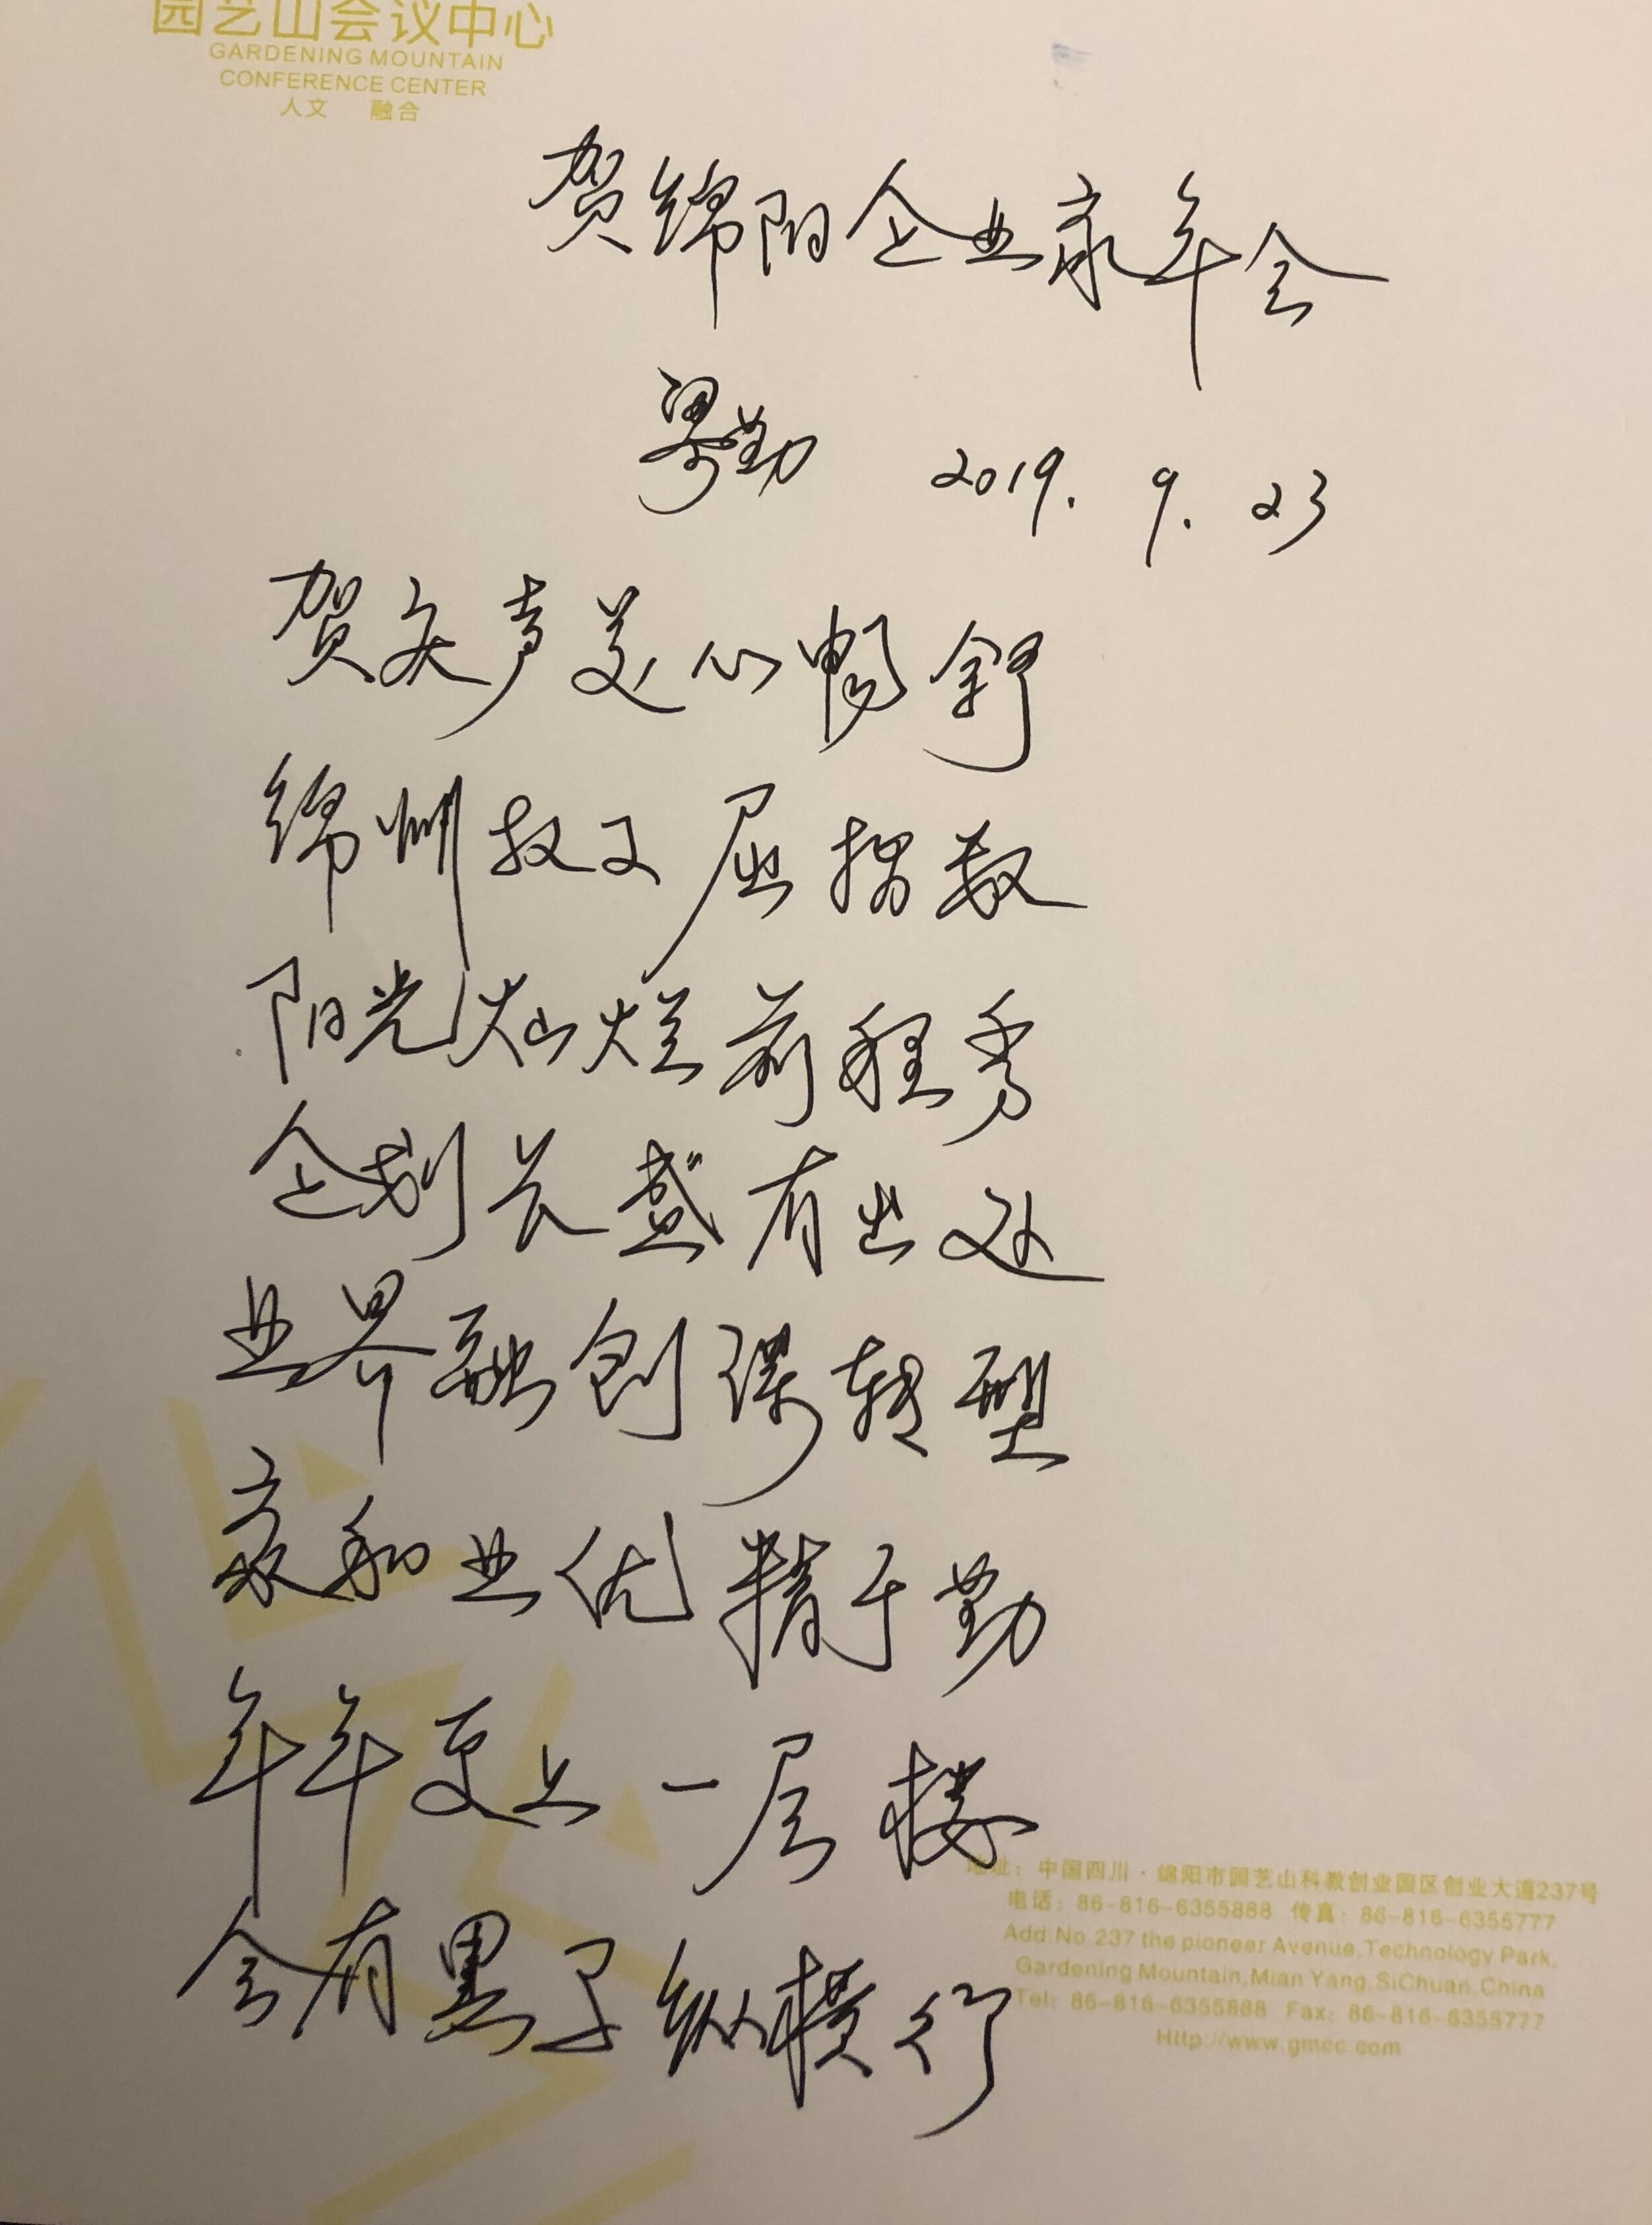 园艺山会议中心
GARDENING MOUNTAIN
CONFERENCE CENTER
人文 融合
贺绵阳企业家年会
勤 2019. 9. 23
贺庆声美心畅舒
绵州 屈指数
阳光灿烂前程秀
企划长盛有出处
业界融创谋转型
家和业优精于勤
年年更上一层楼
会有黑子纵横行
地址：中国四川·绵阳市园艺山科教创业园区创业大道237号
电话：86-816-6355888 传真：86-816-6355777
Add.No.237 the pioneer Avenue,Technology Park,
Gardening Mountain,Mian Yang,SiChuan,China
Tel: 86-816-6355888 Fax: 86-816-6355777
Http://www.gmcc.com